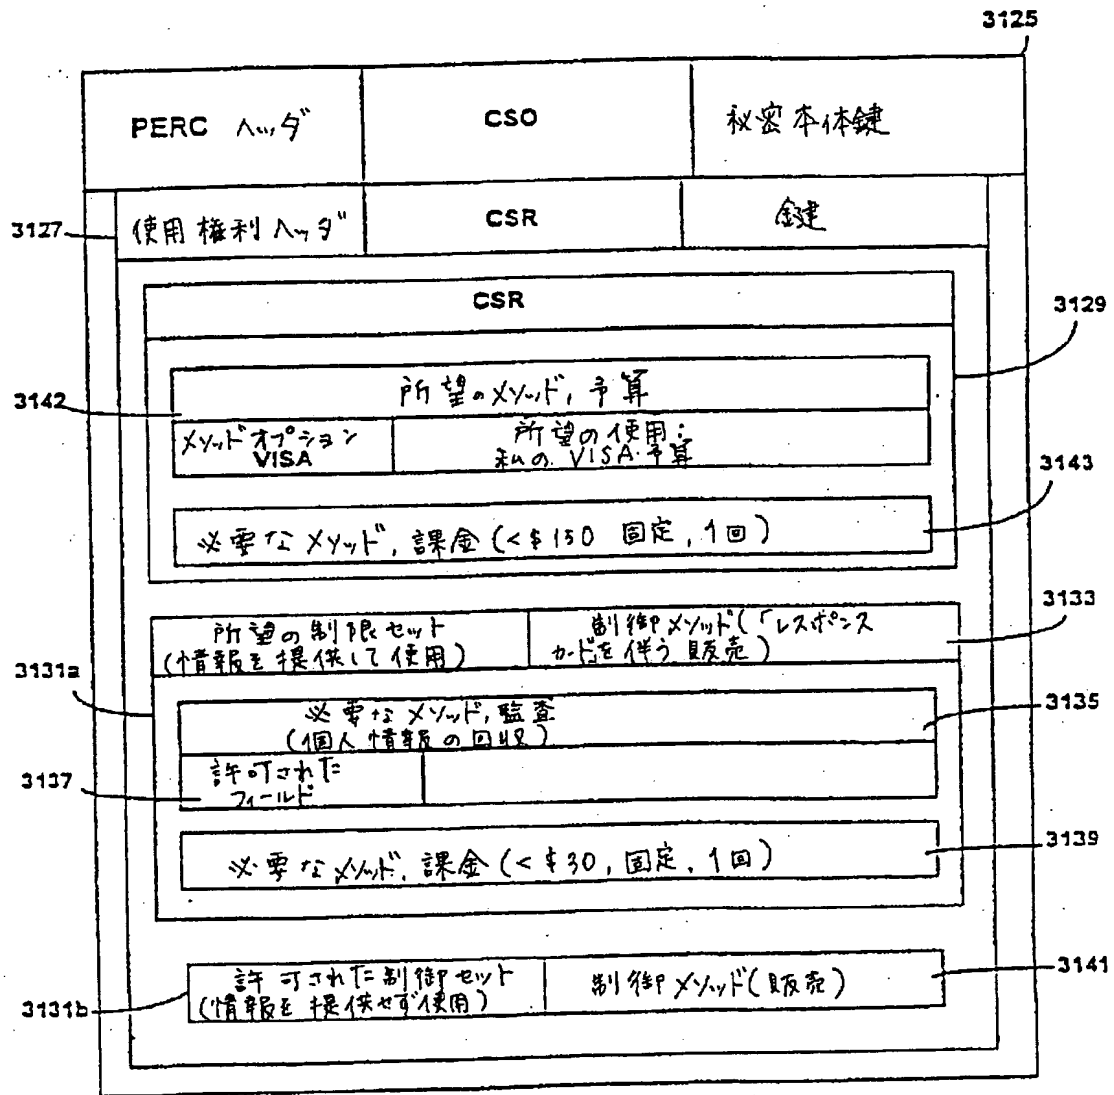 3125
PERC ヘッダ
CSO
秘密本体鍵
3127
使用権利ヘッダ
CSR
鍵
CSR
3129
所望のメソッド, 予算
3142
メソッドオプション
VISA
所望の使用:
私の VISA 予算
3143
必要なメソッド, 課金 (<$150 固定, 1回)
3133
所望の制限セット
(情報を提供して使用)
制御メソッド(「レスポンス
カード」を伴う販売)
3131a
必要なメソッド, 監査
(個人情報の回収)
3135
3137
許可された
フィールド
必要なメソッド, 課金 (<$30, 固定, 1回)
3139
許可された制御セット
(情報を提供せず使用)
制御メソッド(販売)
3141
3131b